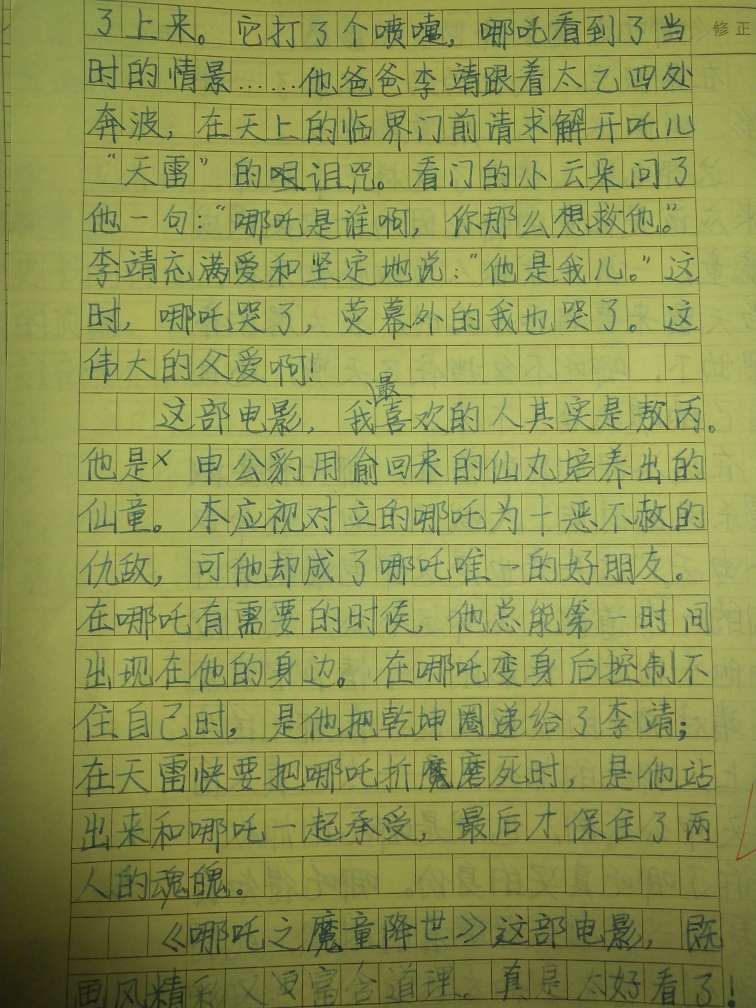 了上来。它打了个喷嚏，哪吒看到了当
修正
时的情景……他爸爸李靖跟着太乙四处
奔波，在天上的临界门前请求解开吒儿
“天雷”的咀诅咒。看门的小云朵问了
他一句：“哪吒是谁啊，你那么想救他。”
李靖充满爱和坚定地说：“他是我儿。”这
时，哪吒哭了，荧幕外的我也哭了。这
伟大的父爱啊！
这部电影，我最喜欢的人其实是敖丙。
他是申公豹用偷回来的仙丸培养出的
仙童。本应视对立的哪吒为十恶不赦的
仇敌，可他却成了哪吒唯一的好朋友。
在哪吒有需要的时候，他总能第一时间
出现在他的身边。在哪吒变身后控制不
住自己时，是他把乾坤圈递给了李靖；
在天雷快要把哪吒折魔磨死时，是他站
出来和哪吒一起承受，最后才保住了两
人的魂魄。
《哪吒之魔童降世》这部电影，既
画风精彩又富含道理。真是太好看了！